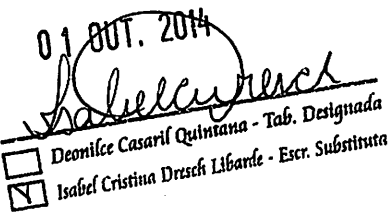 01 OUT. 2014
Isabelcdresch
Deonilce Casaril Quintana - Tab. Designada
Isabel Cristina Dresch Libarde - Escr. Substituta